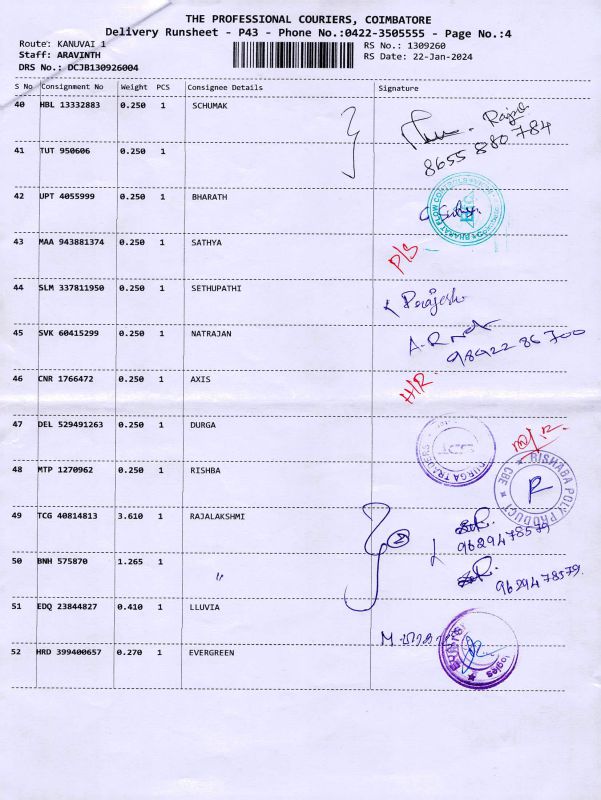 THE PROFESSIONAL COURIERS, COIMBATORE
Delivery Runsheet - P43 - Phone No.:0422-3505555 - Page No.:4
Route: KANUVAI 1 RS No.: 1309260
Staff: ARAVINTH RS Date: 22-Jan-2024
DRS No.: DCJB130926004
S No Consignment No Weight PCS Consignee Details Signature
40 HBL 13332883 0.250 1 SCHUMAK
Rajesh
8655 880 784
41 TUT 950606 0.250 1
42 UPT 4055999 0.250 1 BHARATH
43 MAA 943881374 0.250 1 SATHYA
D/S
44 SLM 337811950 0.250 1 SETHUPATHI
Rajesh
45 SVK 60415299 0.250 1 NATRAJAN
98422 86 700
46 CNR 1766472 0.250 1 AXIS
H/R
47 DEL 529491263 0.250 1 DURGA
DURGA TRADERS
48 MTP 1270962 0.250 1 RISHBA
RISHABA POLY PRODUCT CBE
R
49 TCG 40814813 3.610 1 RAJALAKSHMI
2
9629478579
50 BNH 575870 1.265 1 "
9629478579.
51 EDQ 23844827 0.410 1 LLUVIA
52 HRD 399400657 0.270 1 EVERGREEN